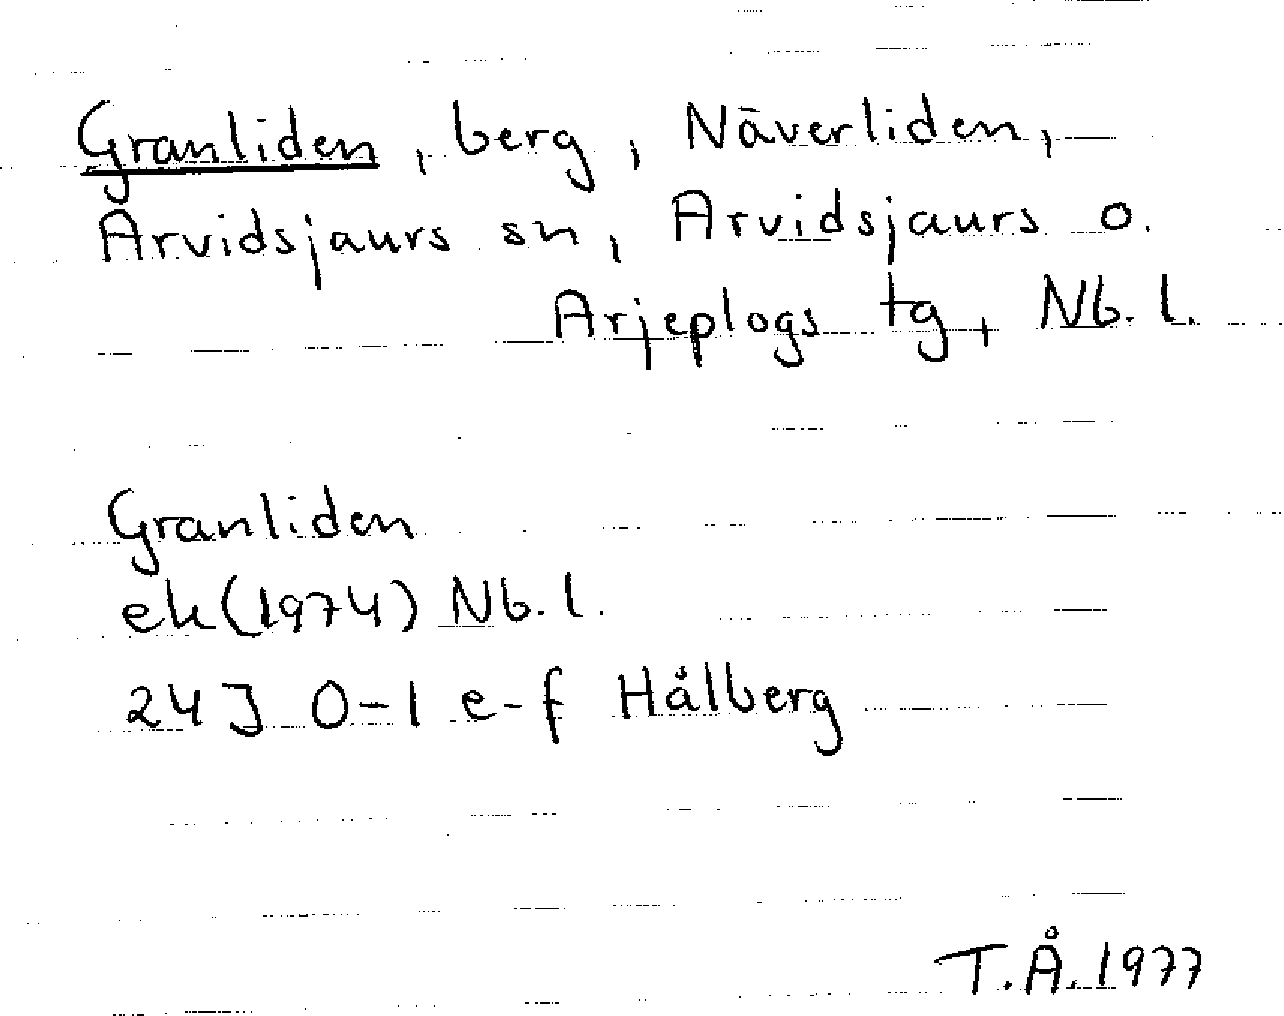 Granliden, berg, Näverliden,
Arvidsjaurs sn, Arvidsjaurs o.
Arjeplogs tg, Nb. l.
Granliden
ek (1974) Nb. l.
24J 0-1 e-f Hålberg
T.Å. 1977